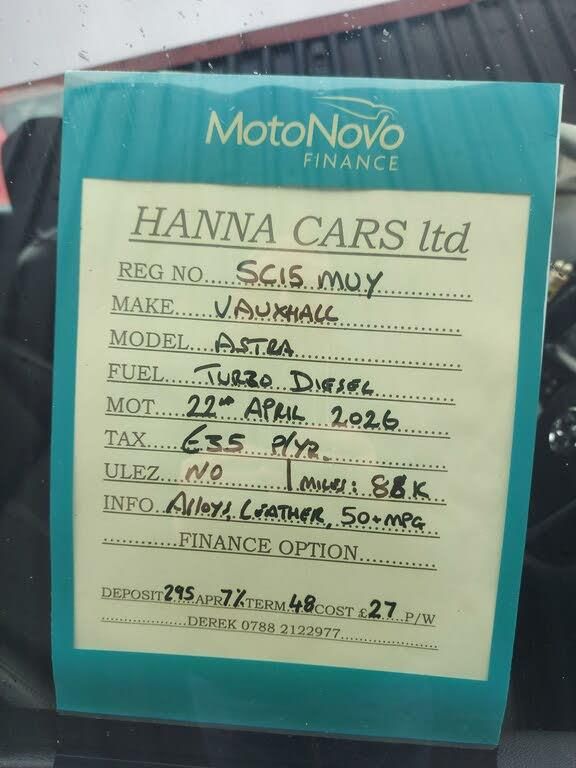 MotoNovo
FINANCE
HANNA CARS ltd
REG NO....SC15 MUY
MAKE....VAUXHALL
MODEL....ASTRA
FUEL....TURBO DIESEL
MOT....22ND APRIL 2026
TAX....£35 P/YR.
ULEZ....NO | MILES: 88K
INFO..Alloys, LEATHER, 50+MPG
............FINANCE OPTION............
DEPOSIT 295 APR 7% TERM 48 COST £27 P/W
............DEREK 0788 2122977............